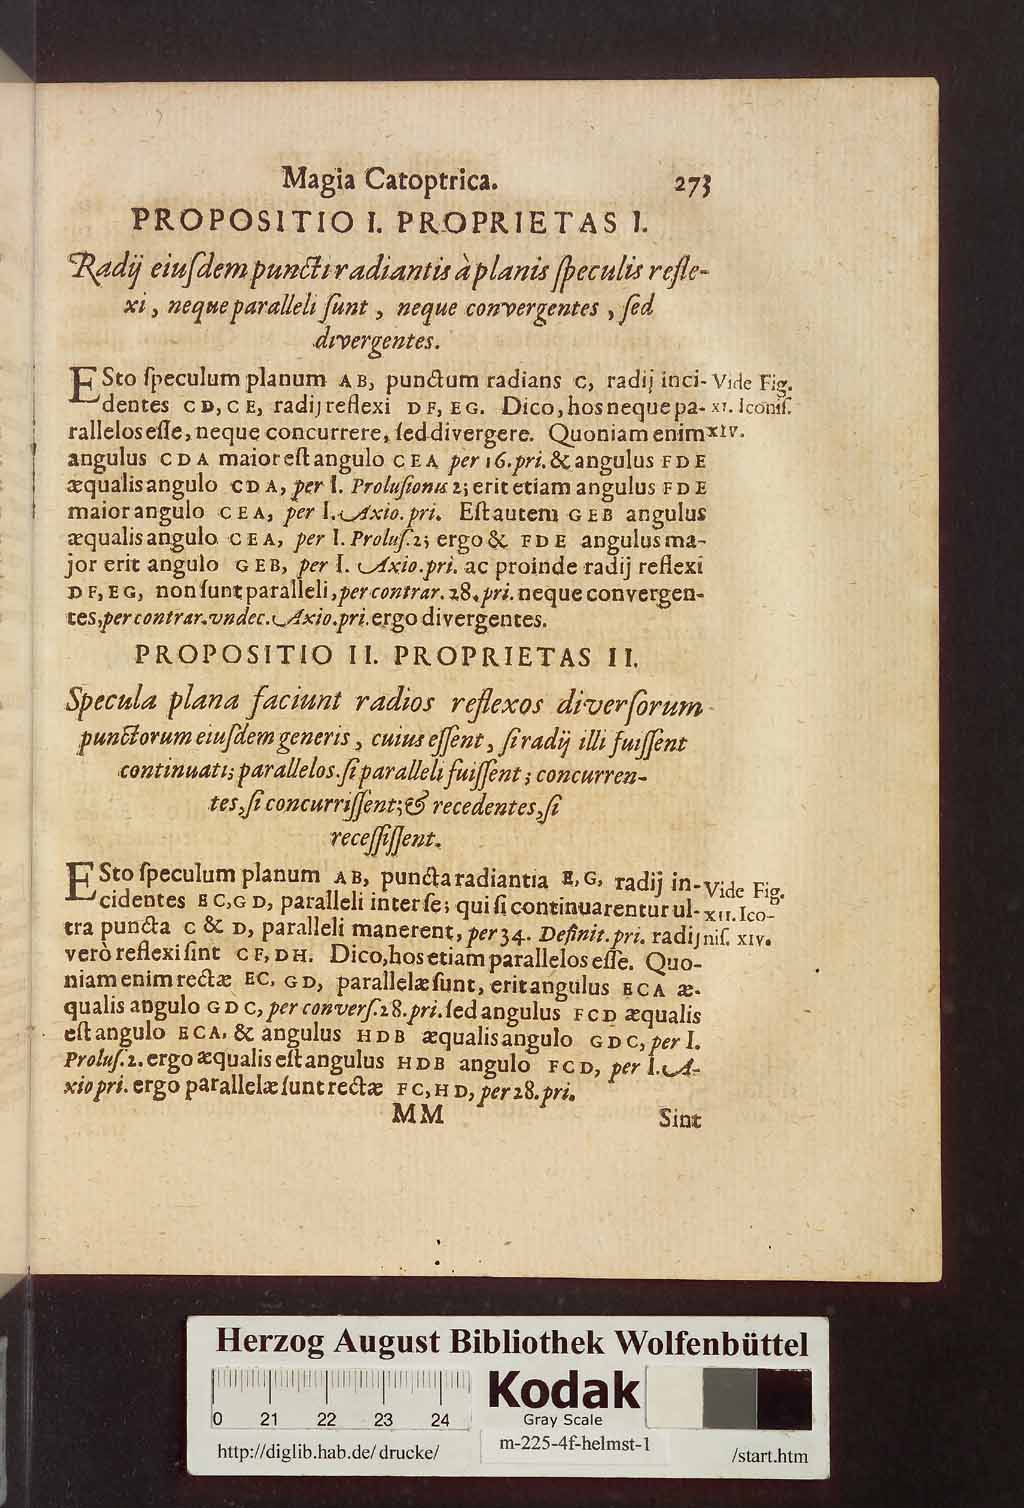 Magia Catoptrica. 273
PROPOSITIO I. PROPRIETAS I.
Radij eiuſdem puncti radiantis à planis ſpeculis refle-
xi, neque paralleli ſunt, neque convergentes, ſed
divergentes.
ESto ſpeculum planum AB, punctum radians C, radij inci-
dentes CD, CE, radij reflexi DF, EG. Dico, hos neque pa-
rallelos eſſe, neque concurrere, ſed divergere. Quoniam enim
angulus CDA maior eſt angulo CEA per 16. pri. & angulus FDE
æqualis angulo CDA, per I. Proluſionis 2; erit etiam angulus FDE
maior angulo CEA, per I. Axio. pri. Eſt autem GEB angulus
æqualis angulo CEA, per I. Proluſ. 2; ergo & FDE angulus ma-
jor erit angulo GEB, per I. Axio. pri. ac proinde radij reflexi
DF, EG, non ſunt paralleli, per contrar. 28. pri. neque convergen-
tes, per contrar. vndec. Axio. pri. ergo divergentes.
Vide Fig.
XI. Iconiſ.
XIV.
PROPOSITIO II. PROPRIETAS II.
Specula plana faciunt radios reflexos diverſorum
punctorum eiuſdem generis, cuius eſſent, ſi radij illi fuiſſent
continuati; parallelos. ſi paralleli fuiſſent; concurren-
tes, ſi concurriſſent; & recedentes, ſi
receſſiſſent.
ESto ſpeculum planum AB, puncta radiantia E, G, radij in-
cidentes EC, GD, paralleli inter ſe; qui ſi continuarentur ul-
tra puncta C & D, paralleli manerent, per 34. Definit. pri. radij
verò reflexi ſint CF, DH. Dico, hos etiam parallelos eſſe. Quo-
niam enim rectæ EC, GD, parallelæ ſunt, erit angulus ECA æ-
qualis angulo GDC, per converſ. 28. pri. ſed angulus FCD æqualis
eſt angulo ECA, & angulus HDB æqualis angulo GDC, per I.
Proluſ. 2. ergo æqualis eſt angulus HDB angulo FCD, per I. A-
xio pri. ergo parallelæ ſunt rectæ FC, HD, per 28. pri.
Vide Fig.
XII. Ico-
niſ. XIV.
MM Sint
Herzog August Bibliothek Wolfenbüttel
0 21 22 23 24
Kodak
Gray Scale
http://diglib.hab.de/drucke/
m-225-4f-helmst-1
/start.htm